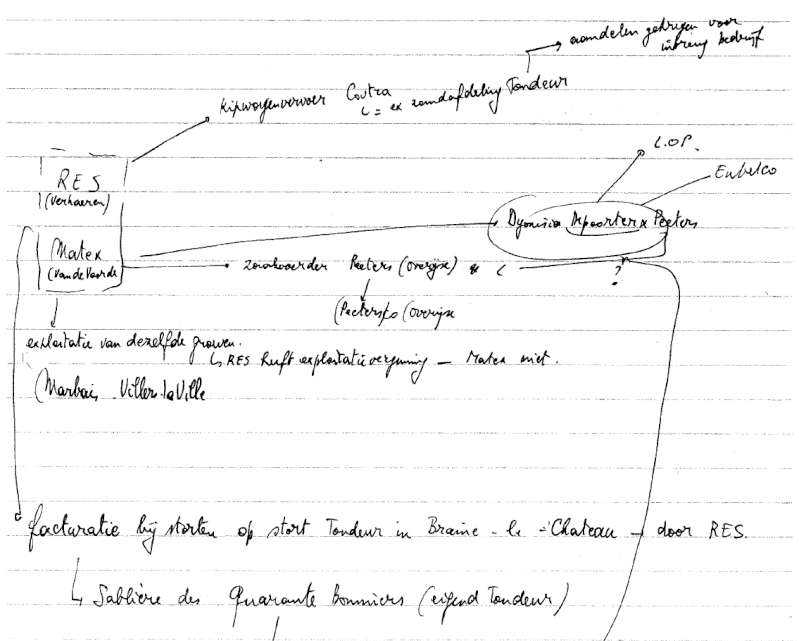 aandelen gekregen voor
inbreng bedrijf
Kipwagenvervoer Coutra
= ex zandafdeling Tondeur
L.O.P.
Eubelco
RES
(Verhaeren)
Dyonisia Depoorter x Peeters
Matex
(Van de Voorde
zaakvoerder Peeters (Overijse)
?
(Peeters (Overijse
exploitatie van dezelfde groeven.
RES heeft exploitatievergunning – Matex niet.
(Marbais Villers-la-Ville
facturatie bij storten op stort Tondeur in Braine-le-Chateau door RES.
Sablière des Quarante Bonniers (eigend Tondeur)